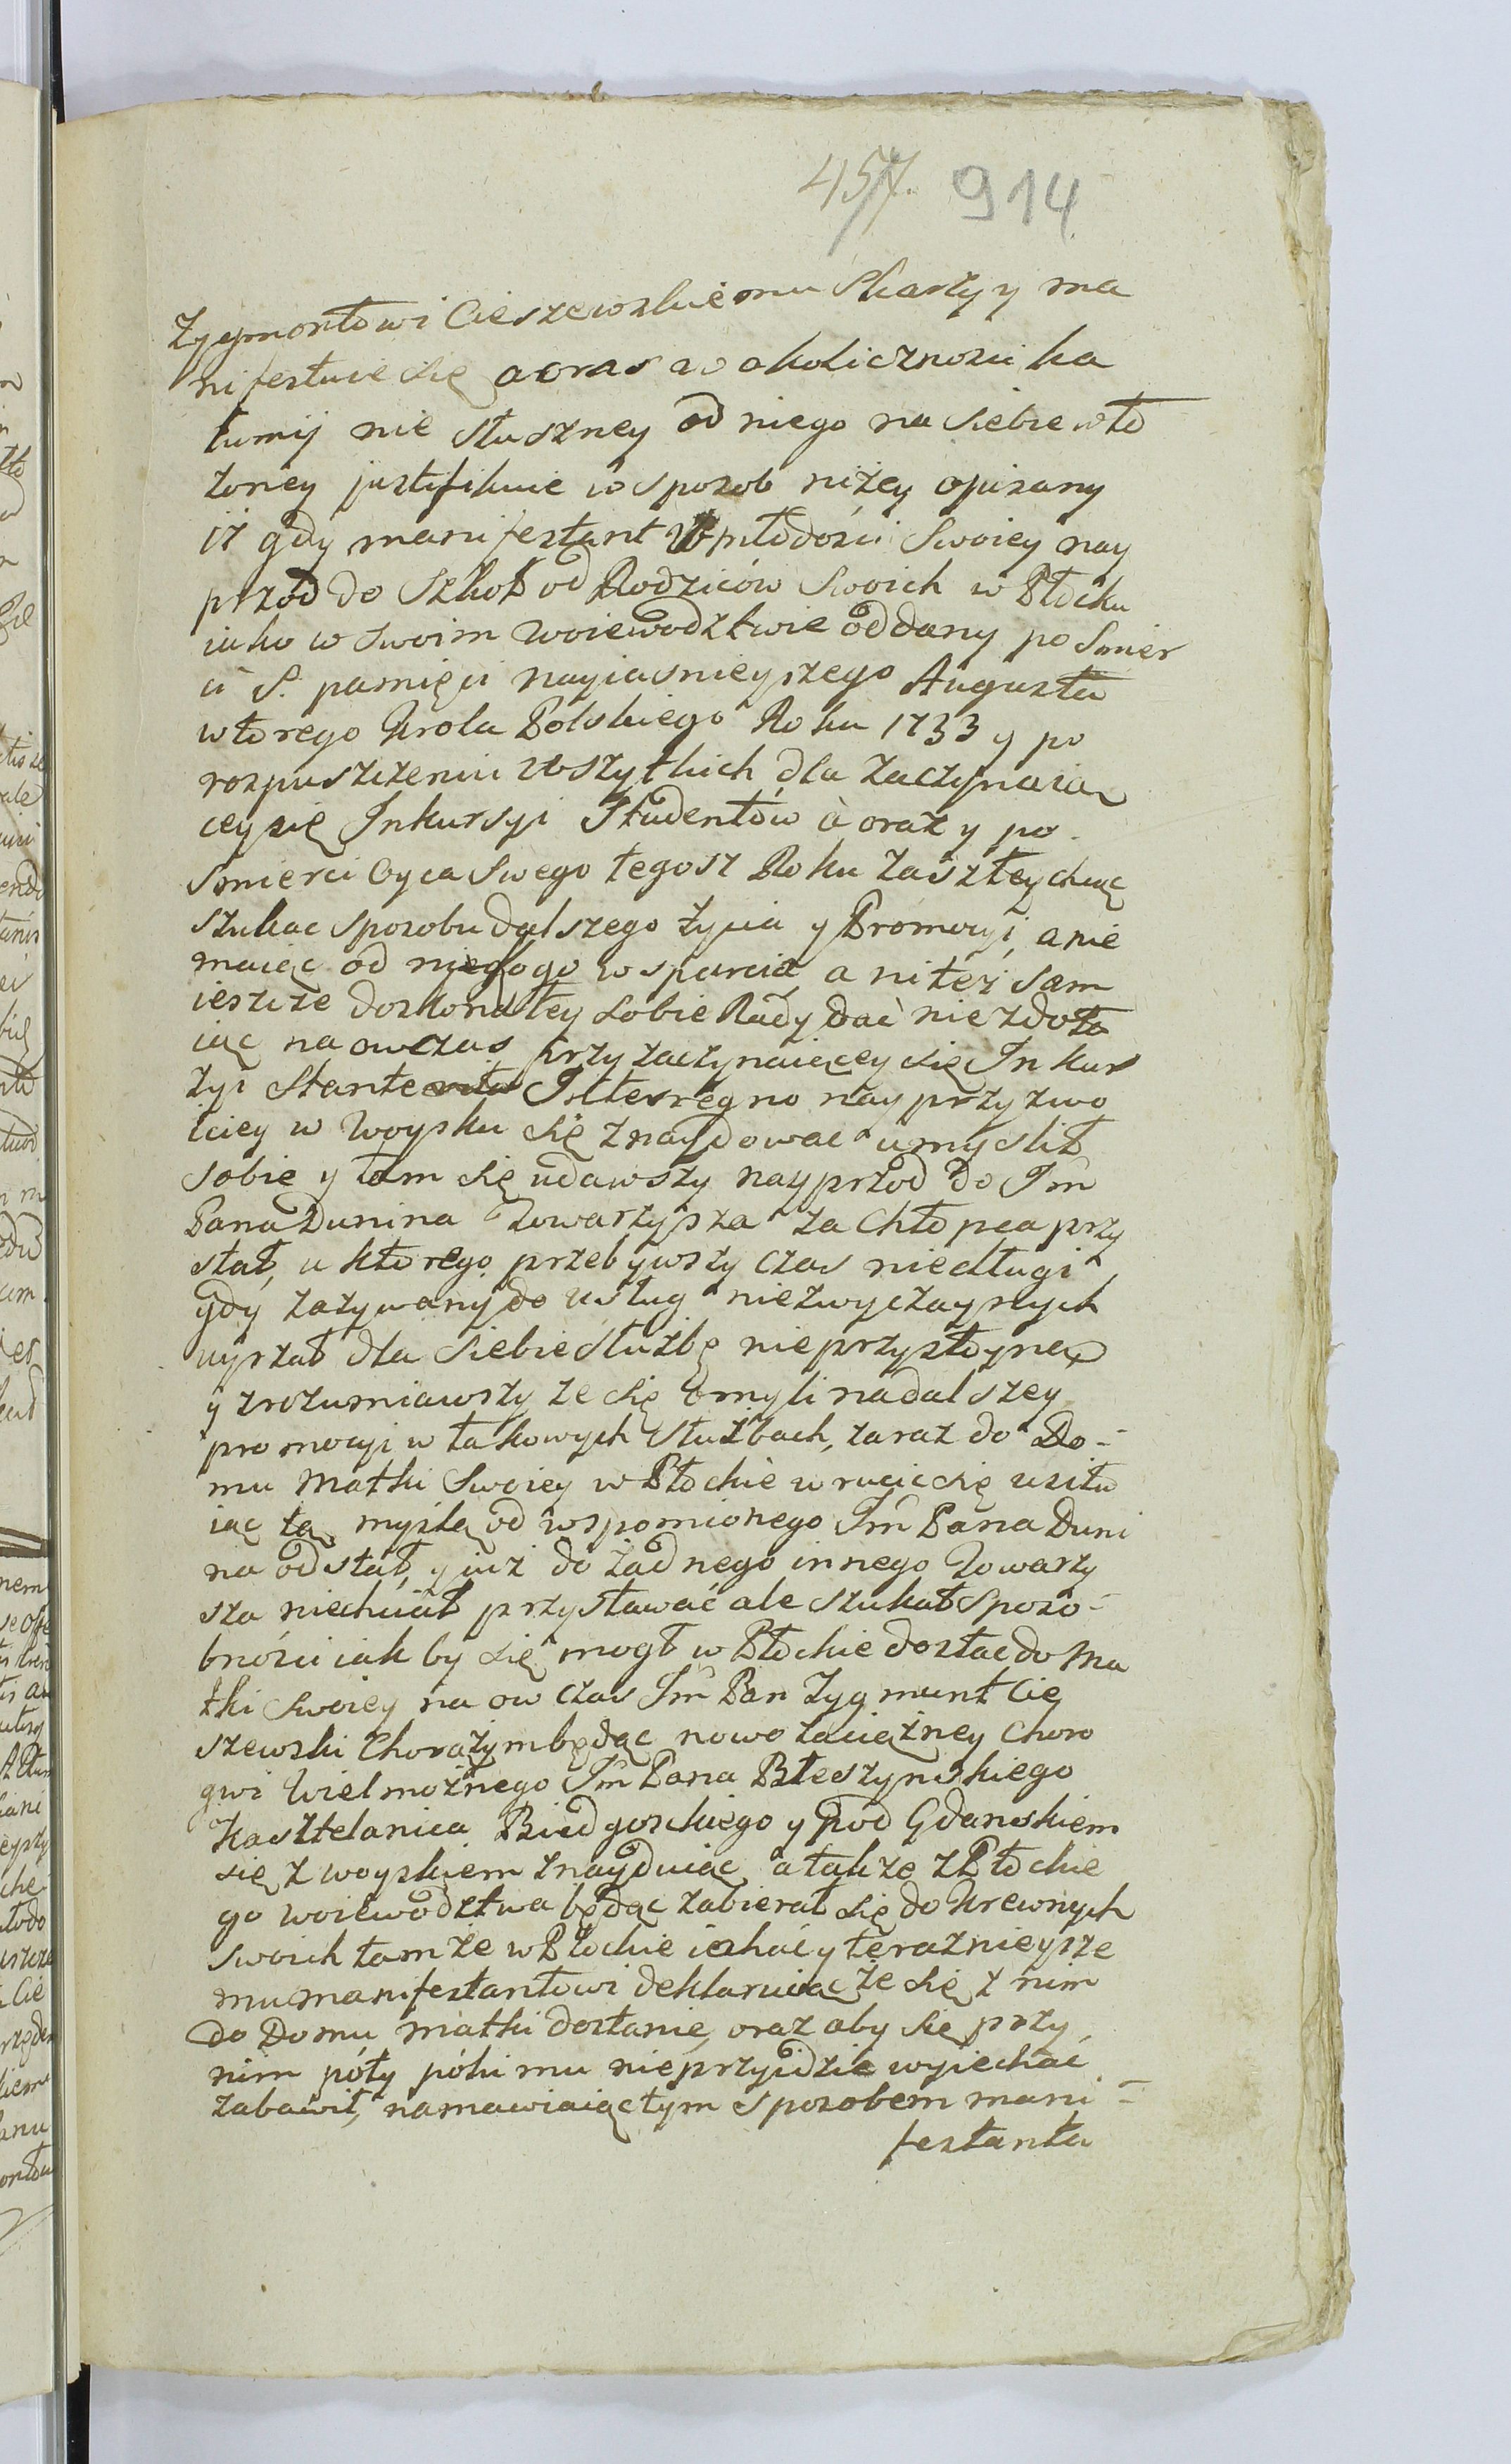 457. 914
Zygmontowi Cieszewskiemu Skarży y ma
nifestuie się a oraz w okoliczności ka
lumij nie słuszney od niego na siebie wło
żoney justifikuie w sposob niżey opisany
iż gdy manifestant w młodości Swoiey nay
przod do Szkoł od Rodziców Swoich w Płocku
iako w swoim Woiewodztwie oddany po Smier
ci S. pamięci nayiasnieyszego Augusta
wtorego Krola Polskiego Roku 1733 y po
rozpuszczeniu wszytkich dla zaczynaią
cey się Inkursyi Studentów à oraz y po
Smierci Oyca Swego tegosz Roku zaszłey chcąc
szukac sposobu dalszego życia y Promocyi, a nie
maiąc od nikogo wsparcia, a ni też sam
ieszcze doskonałey sobie Rady dać nie zdoła
iąc na owczas przy zaczynaiącey się Inkur
zyi Stante Interregno nay przyzwo
iciey w Woysku się znaydowac umyslił
sobie y tam się udawszy nayprzod do Jm
Pana Dunina Towarzysza za Chłopca przy
stał, u ktorego przebywszy czas niedługi,
gdy zażywany do usług niezwyczaynych
uyrzał dla siebie służbę nieprzystoyną
y zrozumiawszy ze się omyli na dalszey
promocyi w takowych Służbach, zaraz do Do-
mu Matki Swoiey w Płockie wrucic się usiłu
iąc tą myslą od wspomionego Jm Pana Duni
na odstał, y iuż do żadnego innego Towarzy
sza niechciał przystawać ale szukał sposo-
bności iak by się mogł w Płockie dostac do Ma
tki Swoiey na ow czas Jm Pan Zygmunt Cie
szewski Chorążym będąc nowo zaciężney Choro
gwi Wielmożnego Jm Pana Błeszynskiego
Kasztelanica Biedgoskiego y pod Gdanskiem
się z woyskiem znayduiąc, a także z Płockie
go woiewodztwa będąc zabierał się do Krewnych
swoich tamże w Płockie iechać y teraznieysze
mu manifestantowi deklaruiąc że się z nim
do Domu matki dostanie, oraz aby się przy
nim póty póki mu nieprzyidzie wyiechac
zabawił, namawiaiąc tym sposobem mani-
festanta